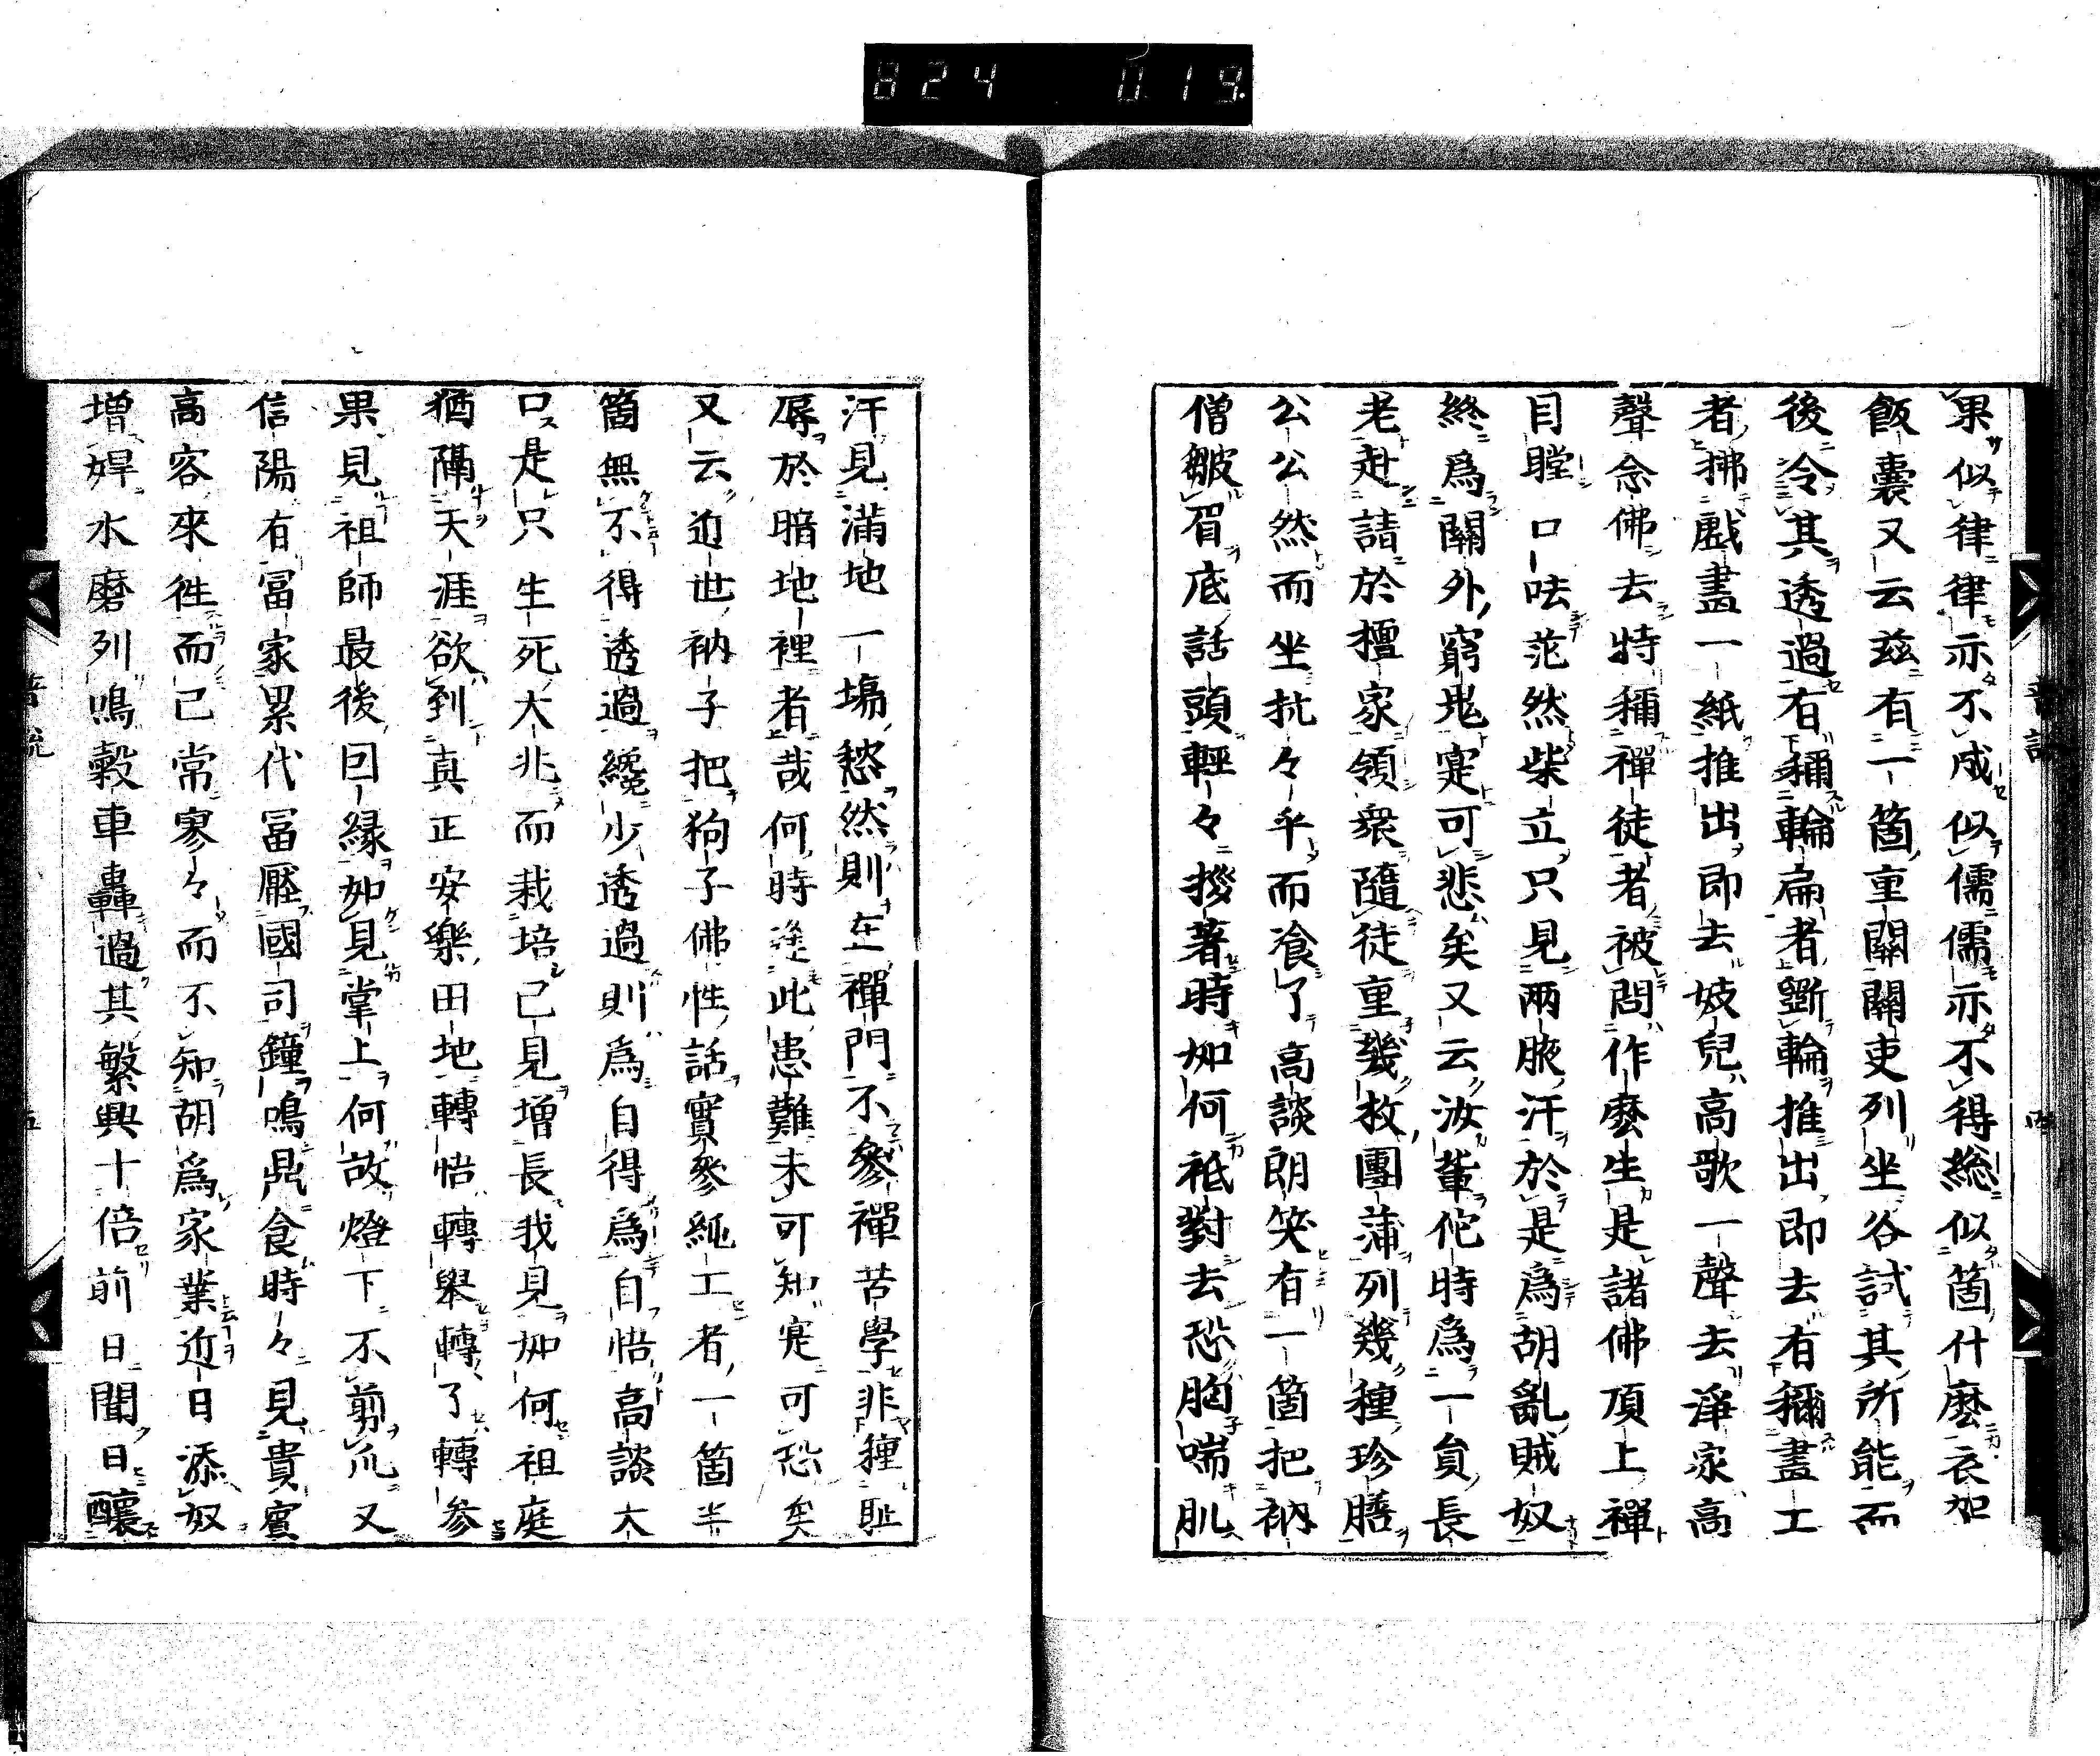 824 019
果似律律亦不成似儒儒亦不得総似箇什麼衣架
飯囊又云茲有一箇重關關吏列坐各試其所能而
後令其透過有稱輪扁者斲輪推出即去有稱畫工
者拂戲畫一紙推出即去妓兒高歌一聲去淨家高
聲念佛去特稱禪徒者被問作麼生是諸佛頂上禪
目瞠口呿茫然柴立只見兩腋汗於是為胡亂賊奴
終為關外窮鬼寔可悲矣又云汝輩佗時為一員長
老赴請於檀家領衆隨徒重幾枚團蒲列幾種珍膳
公公然而坐扤々乎而飡了高談朗笑有一箇把衲
僧皺眉底話頭輕々拶著時如何祗對去恐胸喘肌
汗見滿地一塲愁然則在禪門不參禪苦學非種耻
辱於暗地裡者哉何時逹此患難未可知寔可恐矣
又云近世衲子把狗子佛性話實參純工者一箇半
箇無不得透過纔少透過則為自得為自悟高談大
口是只生死大兆而栽培已見增長我見如何祖庭
猶隔天涯欲到真正安樂田地轉悟轉舉轉了轉參
果見祖師最後回縁如見掌上何故燈下不剪爪又
信陽有冨家累代冨壓國司鐘鳴鼎食時々見貴賓
高客來徃而已常寥々而不知胡為家業近日添奴
增婢水磨列鳴穀車轟過其繁興十倍前日聞日釀